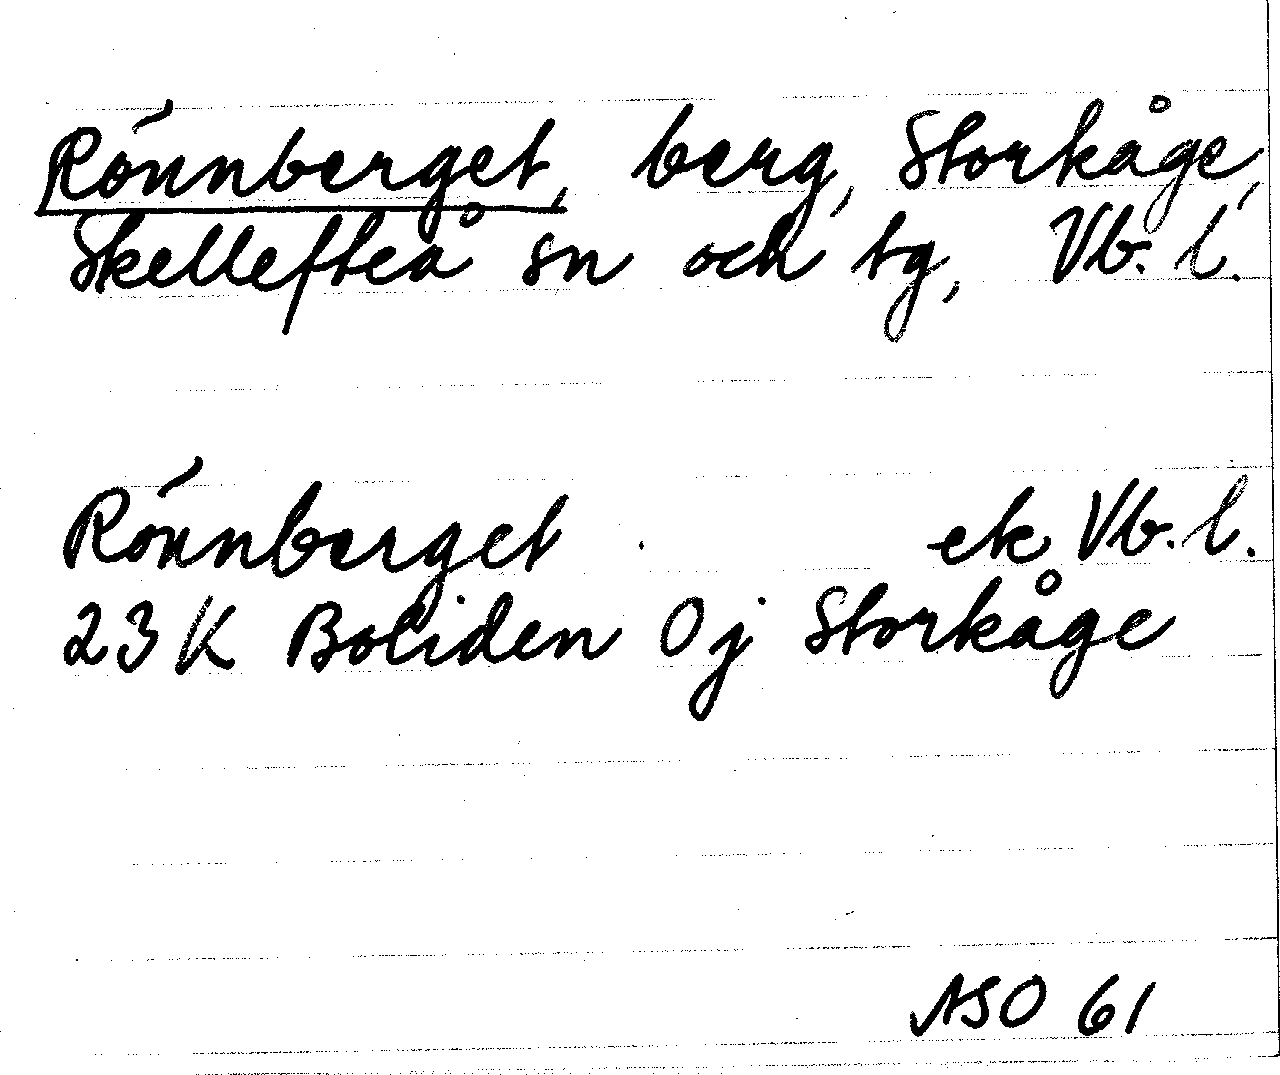 Rönnberget, berg, Storkåge,
Skellefteå sn och tg, Vb. l.
Rönnberget ek Vb. l.
23 K Boliden 0j Storkåge
ASO 61